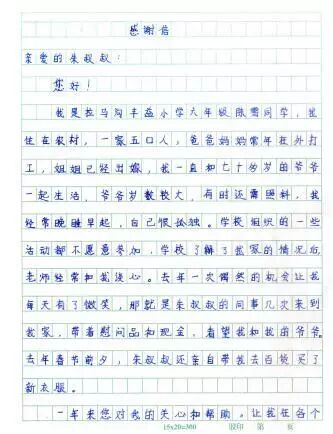 感谢信
亲爱的朱叔叔：
您好！
我是拉马沟丰益小学六年级陈雪同学，我
住在农村，一家五口人，爸爸妈妈常年在外打
工，姐姐已经出嫁，我一直和七十多岁的爷爷
一起生活，爷爷岁数较大，有时还需照料，我
经常晚睡早起，自己恨孤独。学校组织的一些
活动都不愿意参加，学校了解了我家的情况后
老师经常和我谈心。去年一次偶然的机会让我
每天有了微笑，那就是朱叔叔的同事几次来到
我家，带着慰问品和现金，看望我和我的爷爷。
去年春节前夕，朱叔叔还亲自带我去百货买了
新衣服。
一年来您对我的关心和帮助。让我在各个
15x20=300 第 页